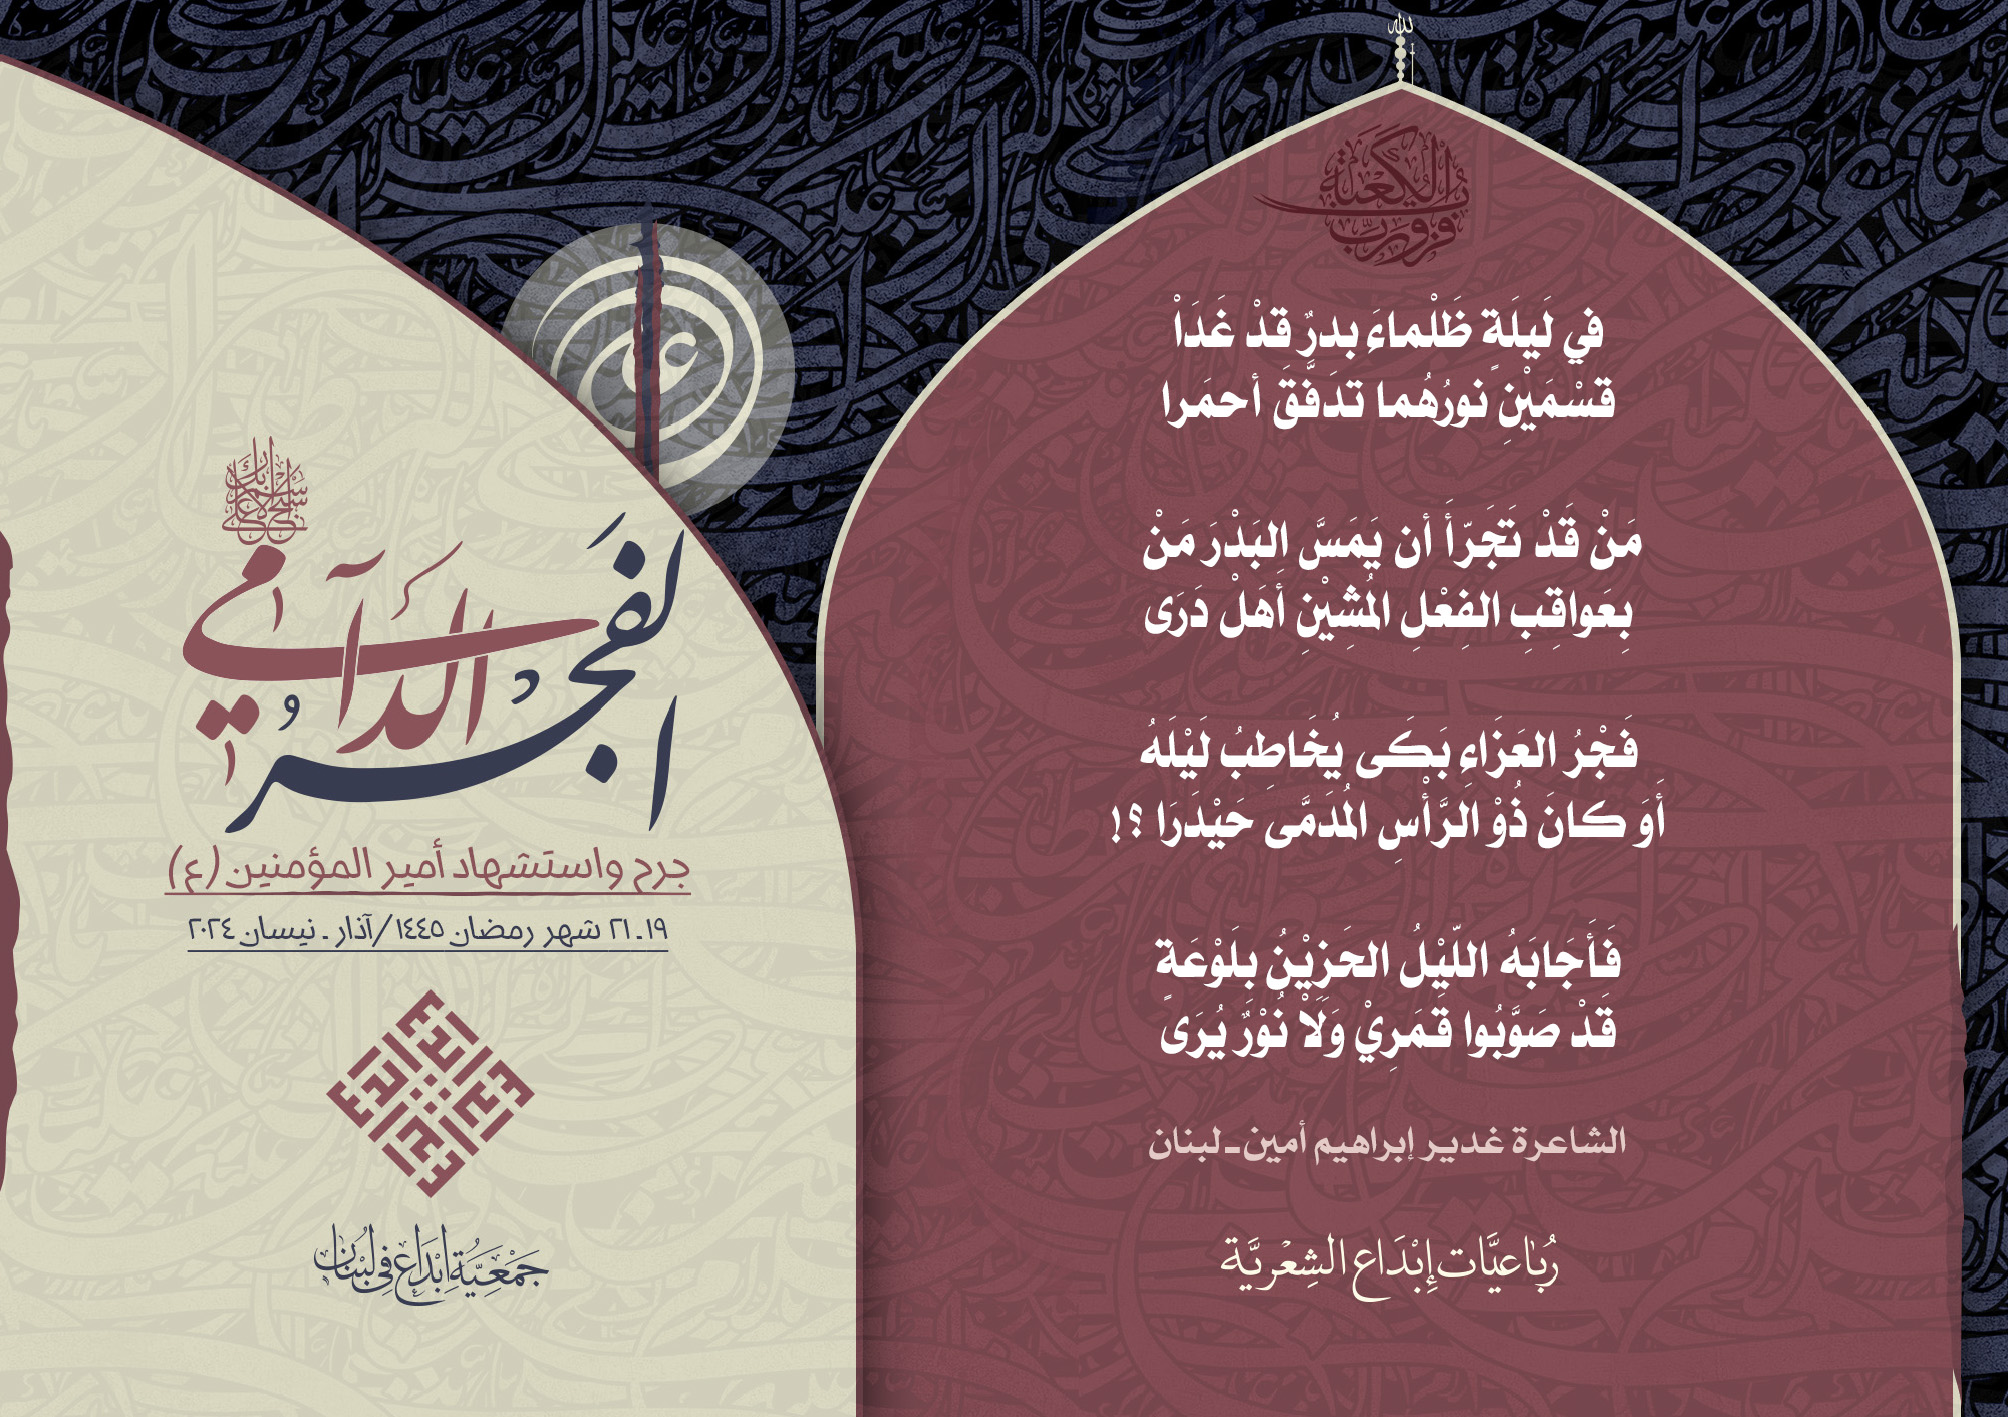 لله
فزت ورب الكعبة
في لَيلَةٍ ظَلْماءَ بدرٌ قدْ غَدَاْ
قسْمَيْنِ نورُهُما تدَفَّقَ أحمَرا
مَنْ قَدْ تَجَرّأَ أن يَمَسَّ البَدْرَ مَنْ
بِعَواقِبِ الفِعْلِ المُشِيْنِ أهَلْ دَرَى
فَجْرُ العَزَاءِ بَكَى يُخَاطِبُ لَيْلَهُ
أَوَ كانَ ذُوْ الرَّأْسِ المُدَمَّى حَيْدَرَا ؟!
فَأَجَابَهُ اللّيْلُ الحَزِيْنُ بِلَوْعَةٍ
قَدْ صَوَّبُوا قمَرِيْ وَلَاْ نُوْرٌ يُرَى
الشاعرة غدير إبراهيم أمين - لبنان
رُبَاعيَّات إِبْدَاع الشِعْريَّة
علي
سَبِّحِ اسْمَ رَبِّكَ الأعلى
الفَجرُ الدَّامي
جرح واستشهاد أمير المؤمنين (ع)
١٩ـ٢١ شهر رمضان ١٤٤٥/آذار ـ نيسان ٢٠٢٤
جَمْعِيَّةُ إِبْدَاع فِي لُبْنَان